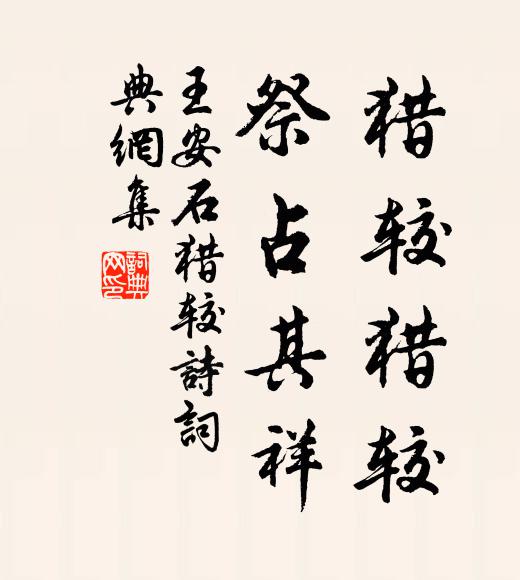 猎较猎较
祭占其祥
王安石猎较詩詞
典網集
詞典
网印